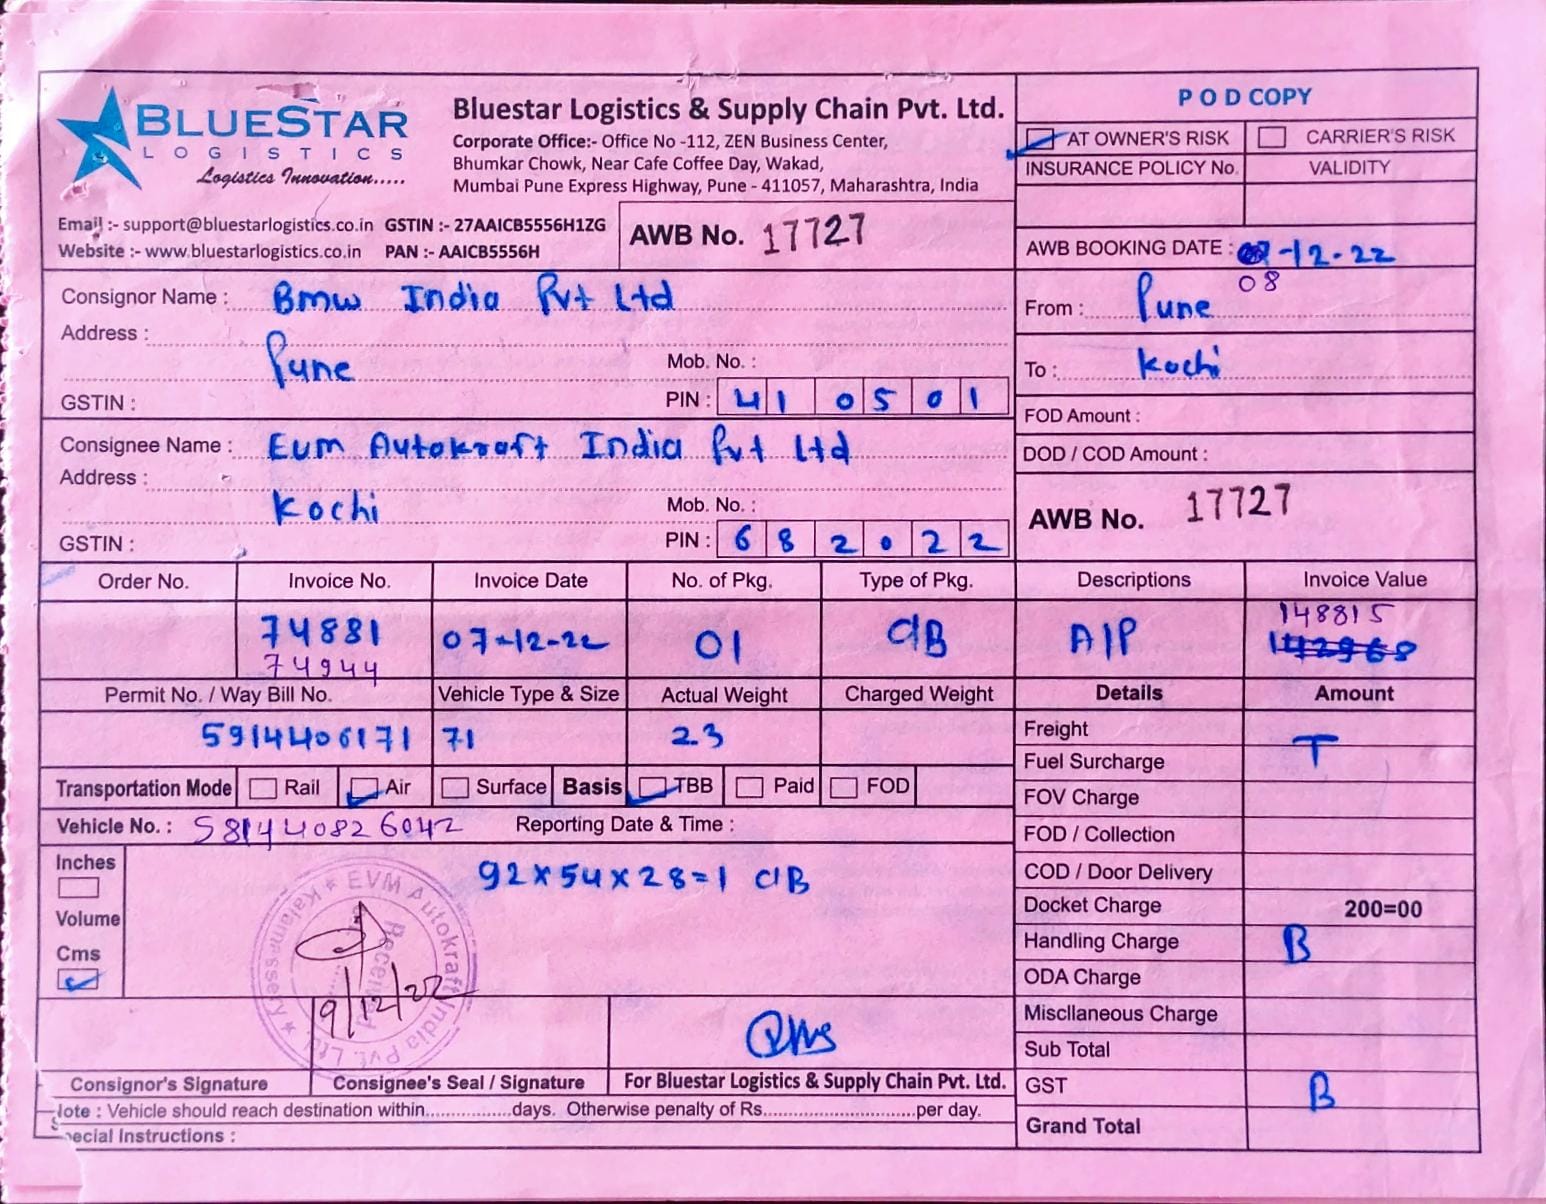 BLUESTAR
LOGISTICS
Logistics Innovation.....
Bluestar Logistics & Supply Chain Pvt. Ltd.
Corporate Office:- Office No -112, ZEN Business Center,
Bhumkar Chowk, Near Cafe Coffee Day, Wakad,
Mumbai Pune Express Highway, Pune - 411057, Maharashtra, India
Email :- support@bluestarlogistics.co.in GSTIN :- 27AAICB5556H1ZG
Website :- www.bluestarlogistics.co.in PAN :- AAICB5556H
AWB No. 17727
POD COPY
AT OWNER'S RISK CARRIER'S RISK
INSURANCE POLICY No. VALIDITY
AWB BOOKING DATE : -12-22
08
Consignor Name : Bmw India Pvt Ltd
Address :
Pune
Mob. No. :
GSTIN :
PIN : 410501
From : Pune
To : Kochi
FOD Amount :
DOD / COD Amount :
Consignee Name : Evm Autokraft India Pvt Ltd
Address :
Kochi
Mob. No. :
GSTIN :
PIN : 682022
AWB No. 17727
Order No. Invoice No. Invoice Date No. of Pkg. Type of Pkg. Descriptions Invoice Value
148815
74881 07-12-22 01 C/B A/P
74944
Permit No. / Way Bill No. Vehicle Type & Size Actual Weight Charged Weight Details Amount
591440617171 71 2.3
Transportation Mode Rail Air Surface Basis TBB Paid FOD
Vehicle No. : 581440826042 Reporting Date & Time :
Inches
Volume
Cms
92x54x28=1 C/B
EVM Autokraft India Pvt. Ltd. * Kalamassery *
Received
9/12/22
Freight
T
Fuel Surcharge
FOV Charge
FOD / Collection
COD / Door Delivery
Docket Charge 200=00
Handling Charge B
ODA Charge
Miscllaneous Charge
Sub Total
GST B
Grand Total
Consignor's Signature Consignee's Seal / Signature For Bluestar Logistics & Supply Chain Pvt. Ltd.
Note : Vehicle should reach destination within................days. Otherwise penalty of Rs.............................per day.
Special Instructions :